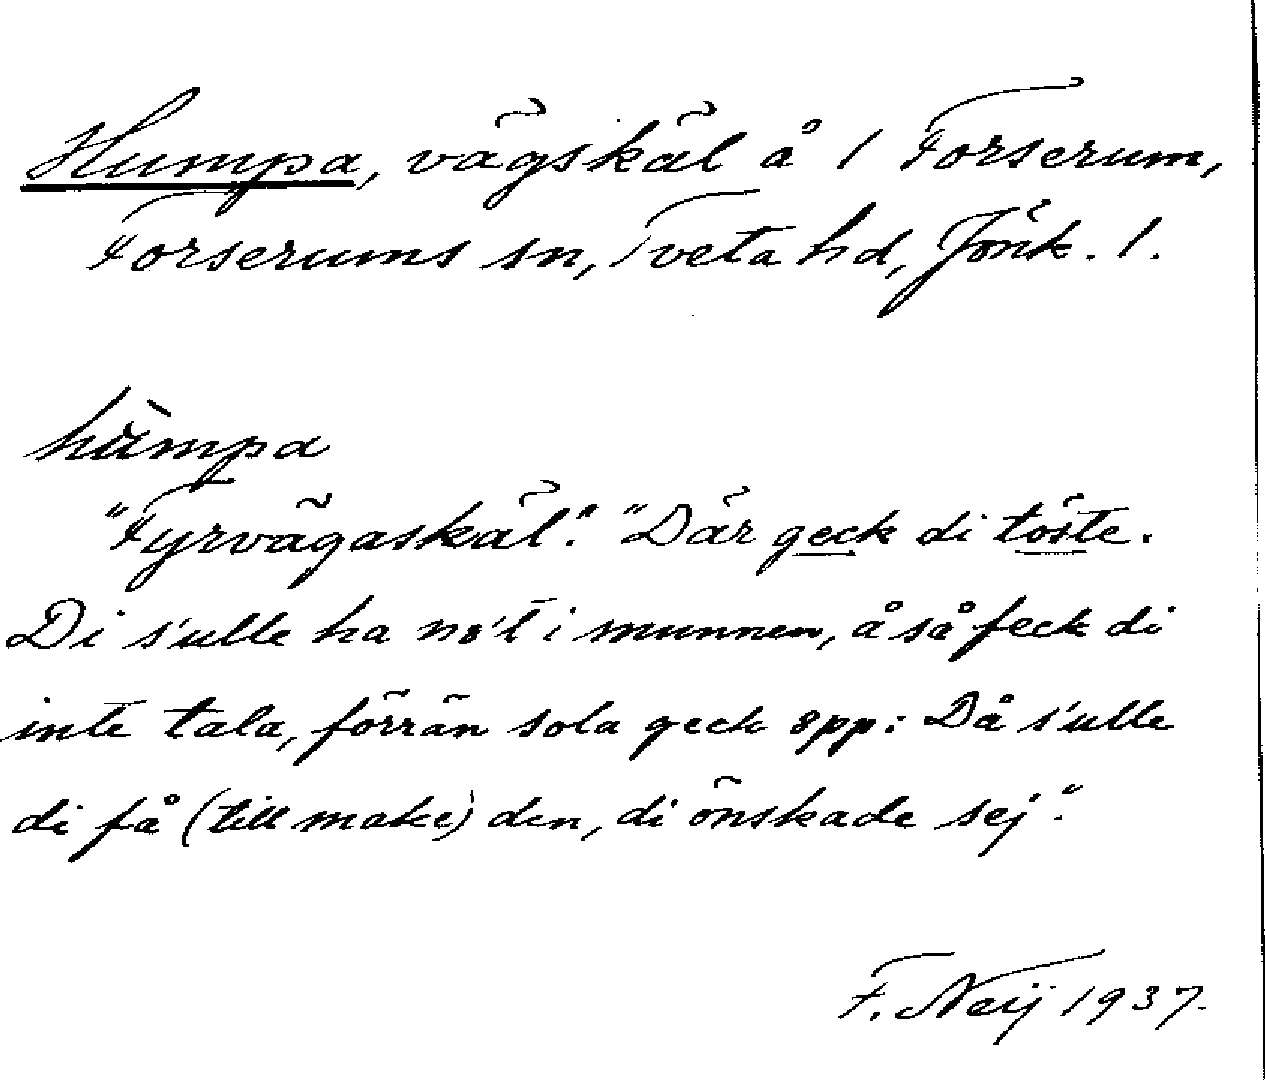 Humpa, vägskäl å 1 Forserum,
Forserums sn, Tveta hd, Jönk. l.
hùmpa
"Fyrvägaskäl." "Där geck di töste.
Di s'ulle ha nö't i munnen, å så feck di
inte tala, förrän sola geck opp: Då s'ulle
di få (till make) den, di önskade sej."
F. Neij 1937.